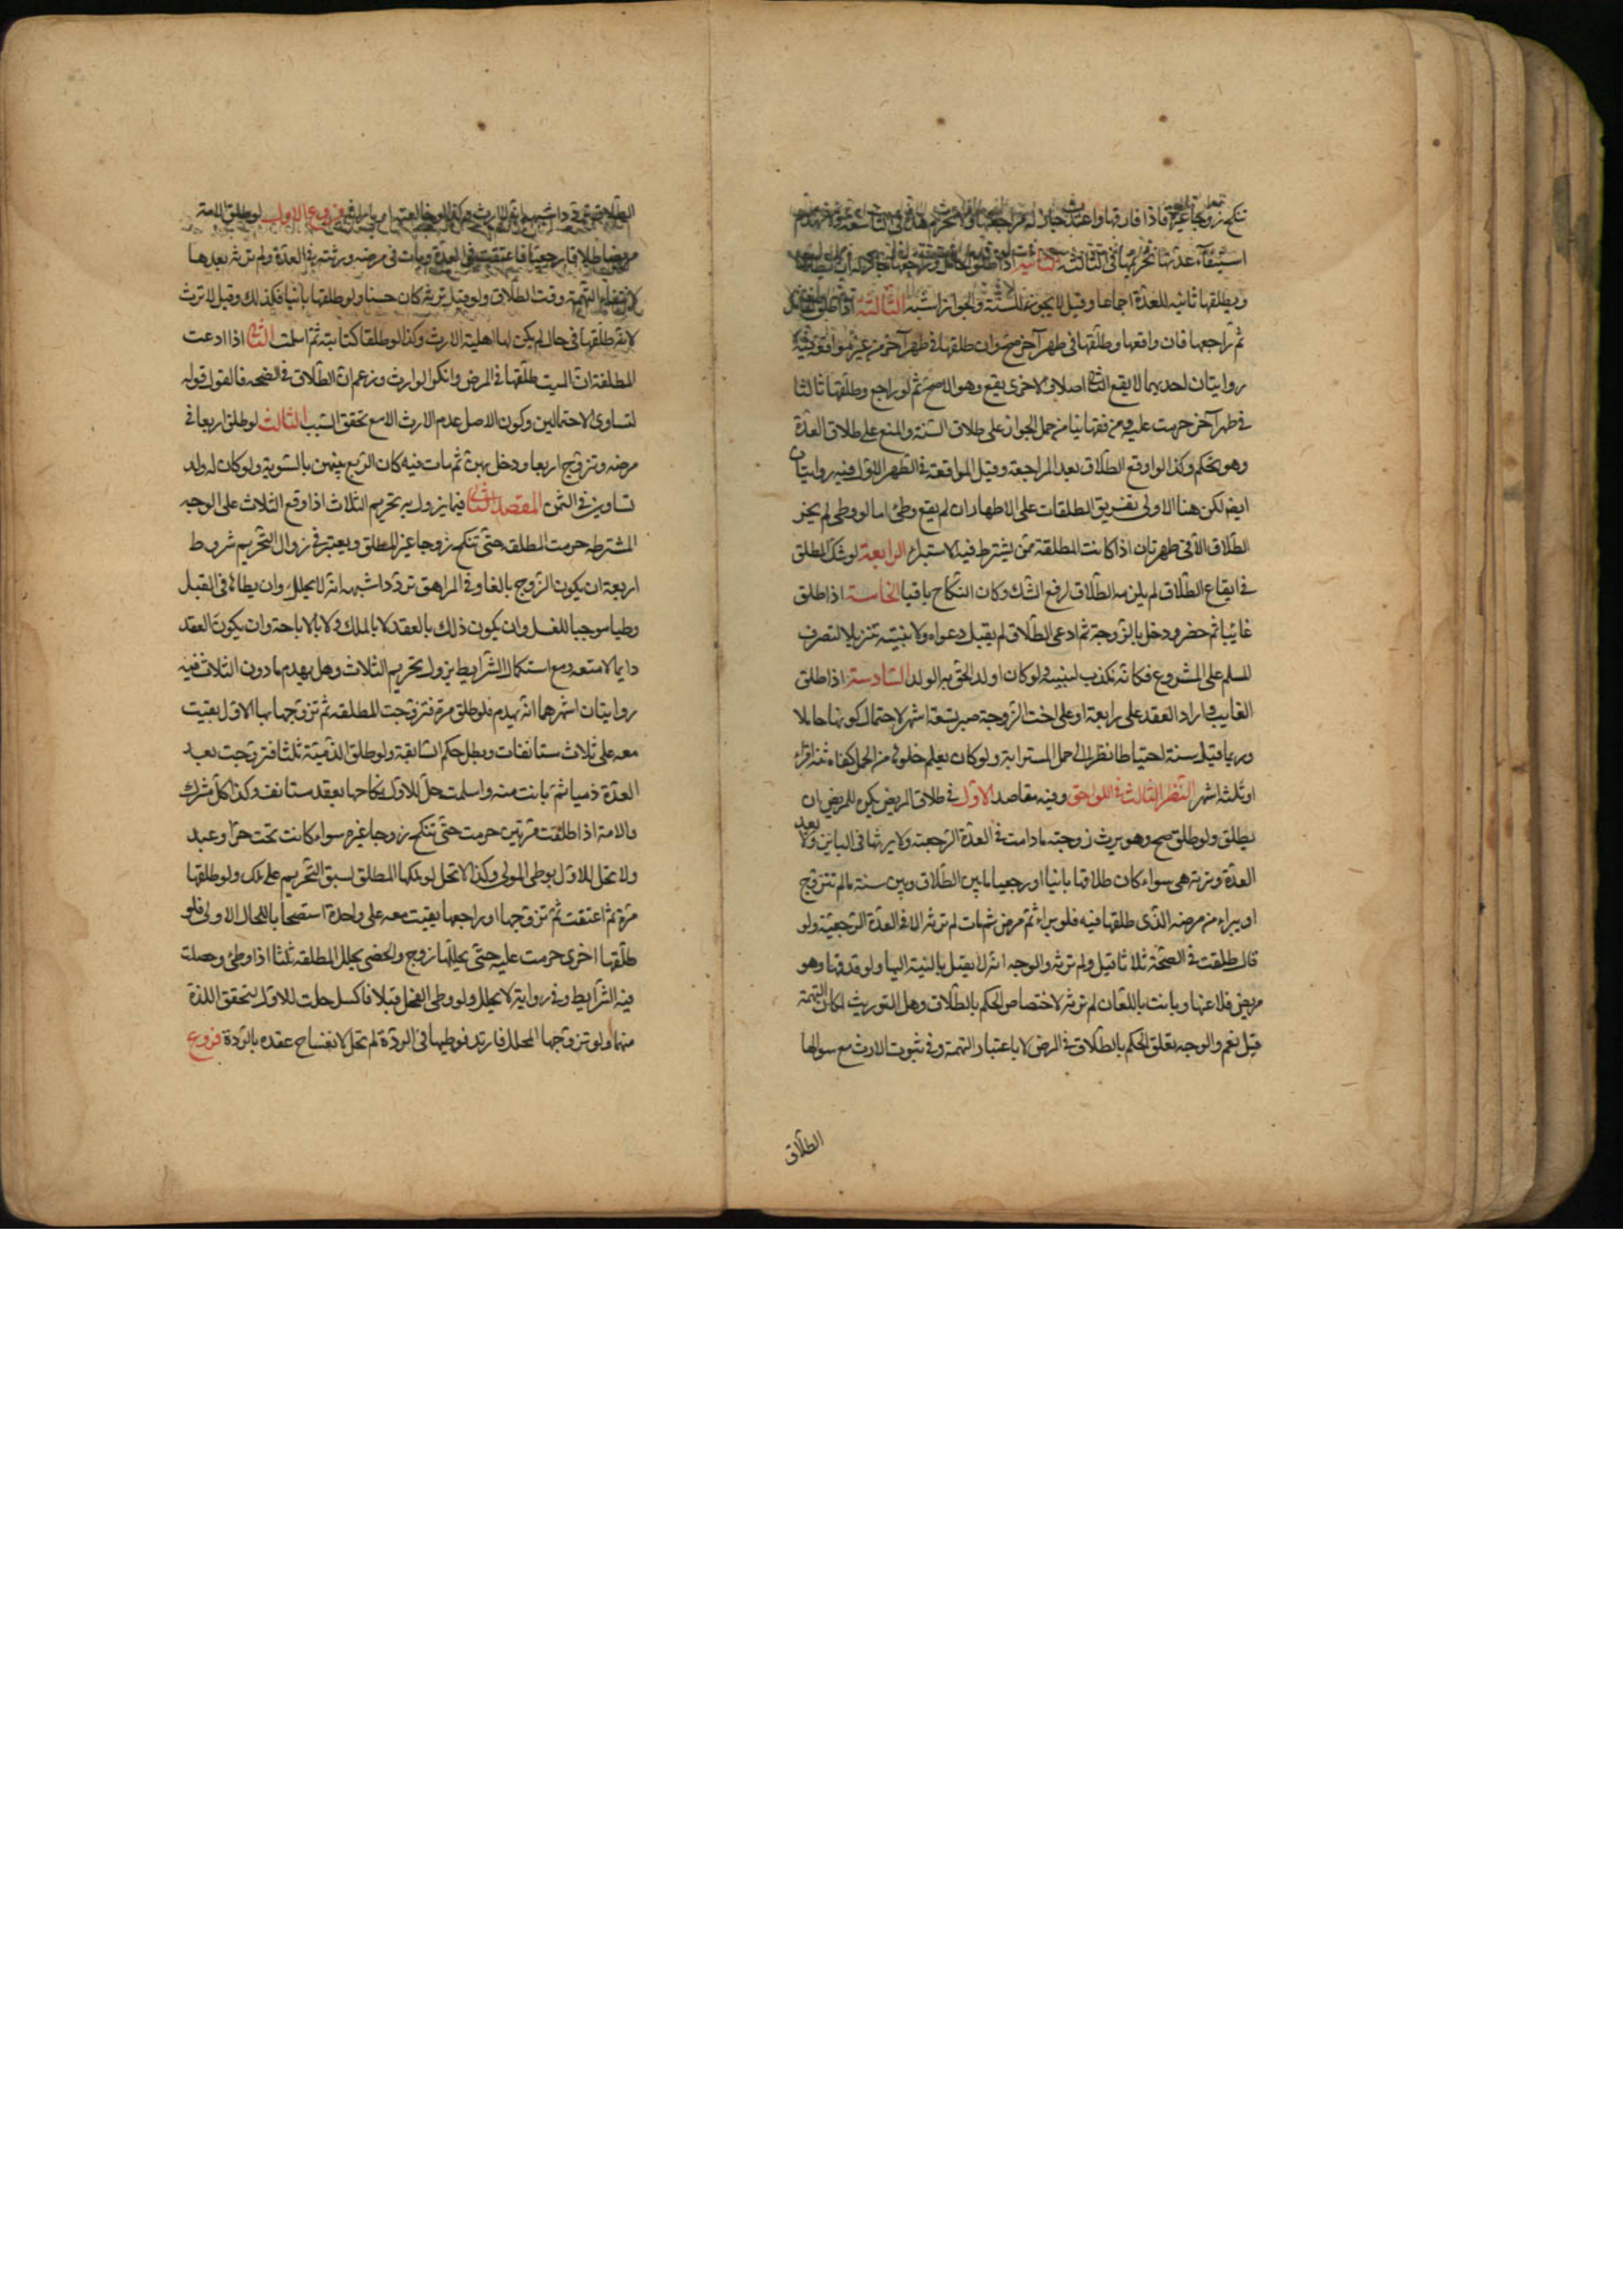 تنكح زوجا غيره فاذا فارقها واعتدت جاز له مراجعتها ولا تحرم هذه في التاسعة ولا يهدم
استيفآء عدتها تحريمها في الثالثة الثانية اذا طلق الحامل وراجعها جاز له ان يطأها
ويطلقها ثانية للعدة اجماعا وقيل لا يجوز للسنة والجواز اشبه الثالثة اذا طلق الحايل
ثم راجعها فان واقعها وطلقها في طهر آخر صح وان طلقها في طهر آخر من غير مواقعة فيه
روايتان احديهما لا يقع الثاني اصلا والاخرى يقع وهو الاصح ثم لو راجع وطلقها ثالثا
في طهر آخر حرمت عليه ومن فقهائنا من حمل الجواز على طلاق السنة والمنع على طلاق العدة
وهو تحكم وكذا لو اوقع الطلاق بعد المراجعة وقبل المواقعة في الطهر الاول فيه روايتان
ايضا لكن هنا الاولى تفريق الطلقات على الاطهار ان لم يقع وطئ اما لو وطى لم يجز
الطلاق الا في طهر ثان اذا كانت المطلقة ممن يشترط فيها الاستبراء الرابعة لو شك المطلق
في ايقاع الطلاق لم يلزمه الطلاق لرفع الشك وكان النكاح باقيا الخامسة اذا طلق
غائبا ثم حضر ودخل بالزوجة ثم ادعى الطلاق لم يقبل دعواه ولا بينته تنزيلا لتصرف
المسلم على المشروع فكانه مكذب لبينته ولو كان اولد لحق به الولد السادسة اذا طلق
الغايب واراد العقد على رابعة او على اخت الزوجة صبر تسعة اشهر لاحتمال كونها حاملا
وربما قيل سنة احتياطا نظرا الى حمل المسترابة ولو كان يعلم خلوها من الحمل كفاه ثلثة اقراء
او ثلثة اشهر النظر الثالث في اللواحق وفيه مقاصد الاول في طلاق المريض يكره للمريض ان
يطلق ولو طلق صح وهو يرث زوجته مادامت في العدة الرجعية ولا يرثها في الباين ولا بعد
العدة وترثه هي سواء كان طلاقها باينا او رجعيا ما بين الطلاق وبين سنة ما لم تتزوج
او يبراء من مرضه الذى طلقها فيه فلو براء ثم مرض ثم مات لم ترثه الا في العدة الرجعية ولو
قال طلقت في الصحة ثلاثا قيل ولم ترثه والوجه انه لا يقبل بالنسبة اليها ولو قذفها وهو
مريض فلاعنها وبانت باللعان لم ترثه لاختصاص الحكم بالطلاق وهل التوريث لمكان التهمة
قيل نعم والوجه تعلق الحكم بالطلاق في المرض لا باعتبار التهمة وفي ثبوت الارث مع سوالها
الطلاق
الطلاق تردد اشبهه انه لا ارث وكذا لو خالعته او باراته فروع الاول لو طلق الامة
مريضا طلاقا رجعيا فاعتقت في العدة ومات في مرضه ورثته في العدة ولم ترثه بعدها
لانتفاء التهمة وقت الطلاق ولو قيل ترثه كان حسنا ولو طلقها باينا فكذلك وقيل لا ترث
لانه طلقها في حال لم يكن لها اهلية الارث وكذا لو طلقها كتابية ثم اسلمت الثاني اذا ادعت
المطلقة ان الميت طلقها في المرض وانكر الوارث وزعم ان الطلاق في الصحة فالقول قوله
لتساوى الاحتمالين وكون الاصل عدم الارث الا مع تحقق السبب الثالث لو طلق اربعا في
مرضه وتزوج اربعا ودخل بهن ثم مات فيه كان الربع بينهن بالسوية ولو كان له ولد
تساوين في الثمن المقصد الثاني فيما يزول به تحريم الثلاث اذا وقع الثلاث على الوجه
المشترط حرمت المطلقة حتى تنكح زوجا غير المطلق ويعتبر في زوال التحريم شروط
اربعة ان يكون الزوج بالغا وفي المراهق تردد اشبهه انه لا يحلل وان يطاءها في القبل
وطيا موجبا للغسل وان يكون ذلك بالعقد لا بالملك ولا بالاباحة وان يكون العقد
دايما لا متعة ومع استكمال الشرايط يزول تحريم الثلاث وهل يهدم ما دون الثلاث فيه
روايتان اشهرهما انه يهدم فلو طلق مرة فتزوجت المطلقة ثم تزوجها بها الاول بقيت
معه على ثلاث مستانفات وبطل حكم السابقة ولو طلق الذمية ثلثا فتزوجت بعد
العدة ذميا ثم بانت منه واسلمت حل للاول نكاحها بعقد مستانف وكذا كل مشرك
والامة اذا طلقت مرتين حرمت حتى تنكح زوجا غيره سواء كانت تحت حر او عبد
ولا تحل للاول بوطى المولى وكذا لا تحل لو ملكها المطلق لسبق التحريم على الملك ولو طلقها
مرة ثم اعتقت ثم تزوجها او راجعها بقيت معه على واحدة استصحابا للحال الاولى فلو
طلقها اخرى حرمت عليه حتى يحللها زوج والخصى يحلل المطلقة ثلثا اذا وطئ وحصلت
فيه الشرايط وفي رواية لا يحلل ولو وطى الفحل قبلا فاكسل حلت للاول لتحقق اللذة
منهما ولو تزوجها المحلل فارتد فوطيها في الردة لم تحل لانفساخ عقده بالردة فروع